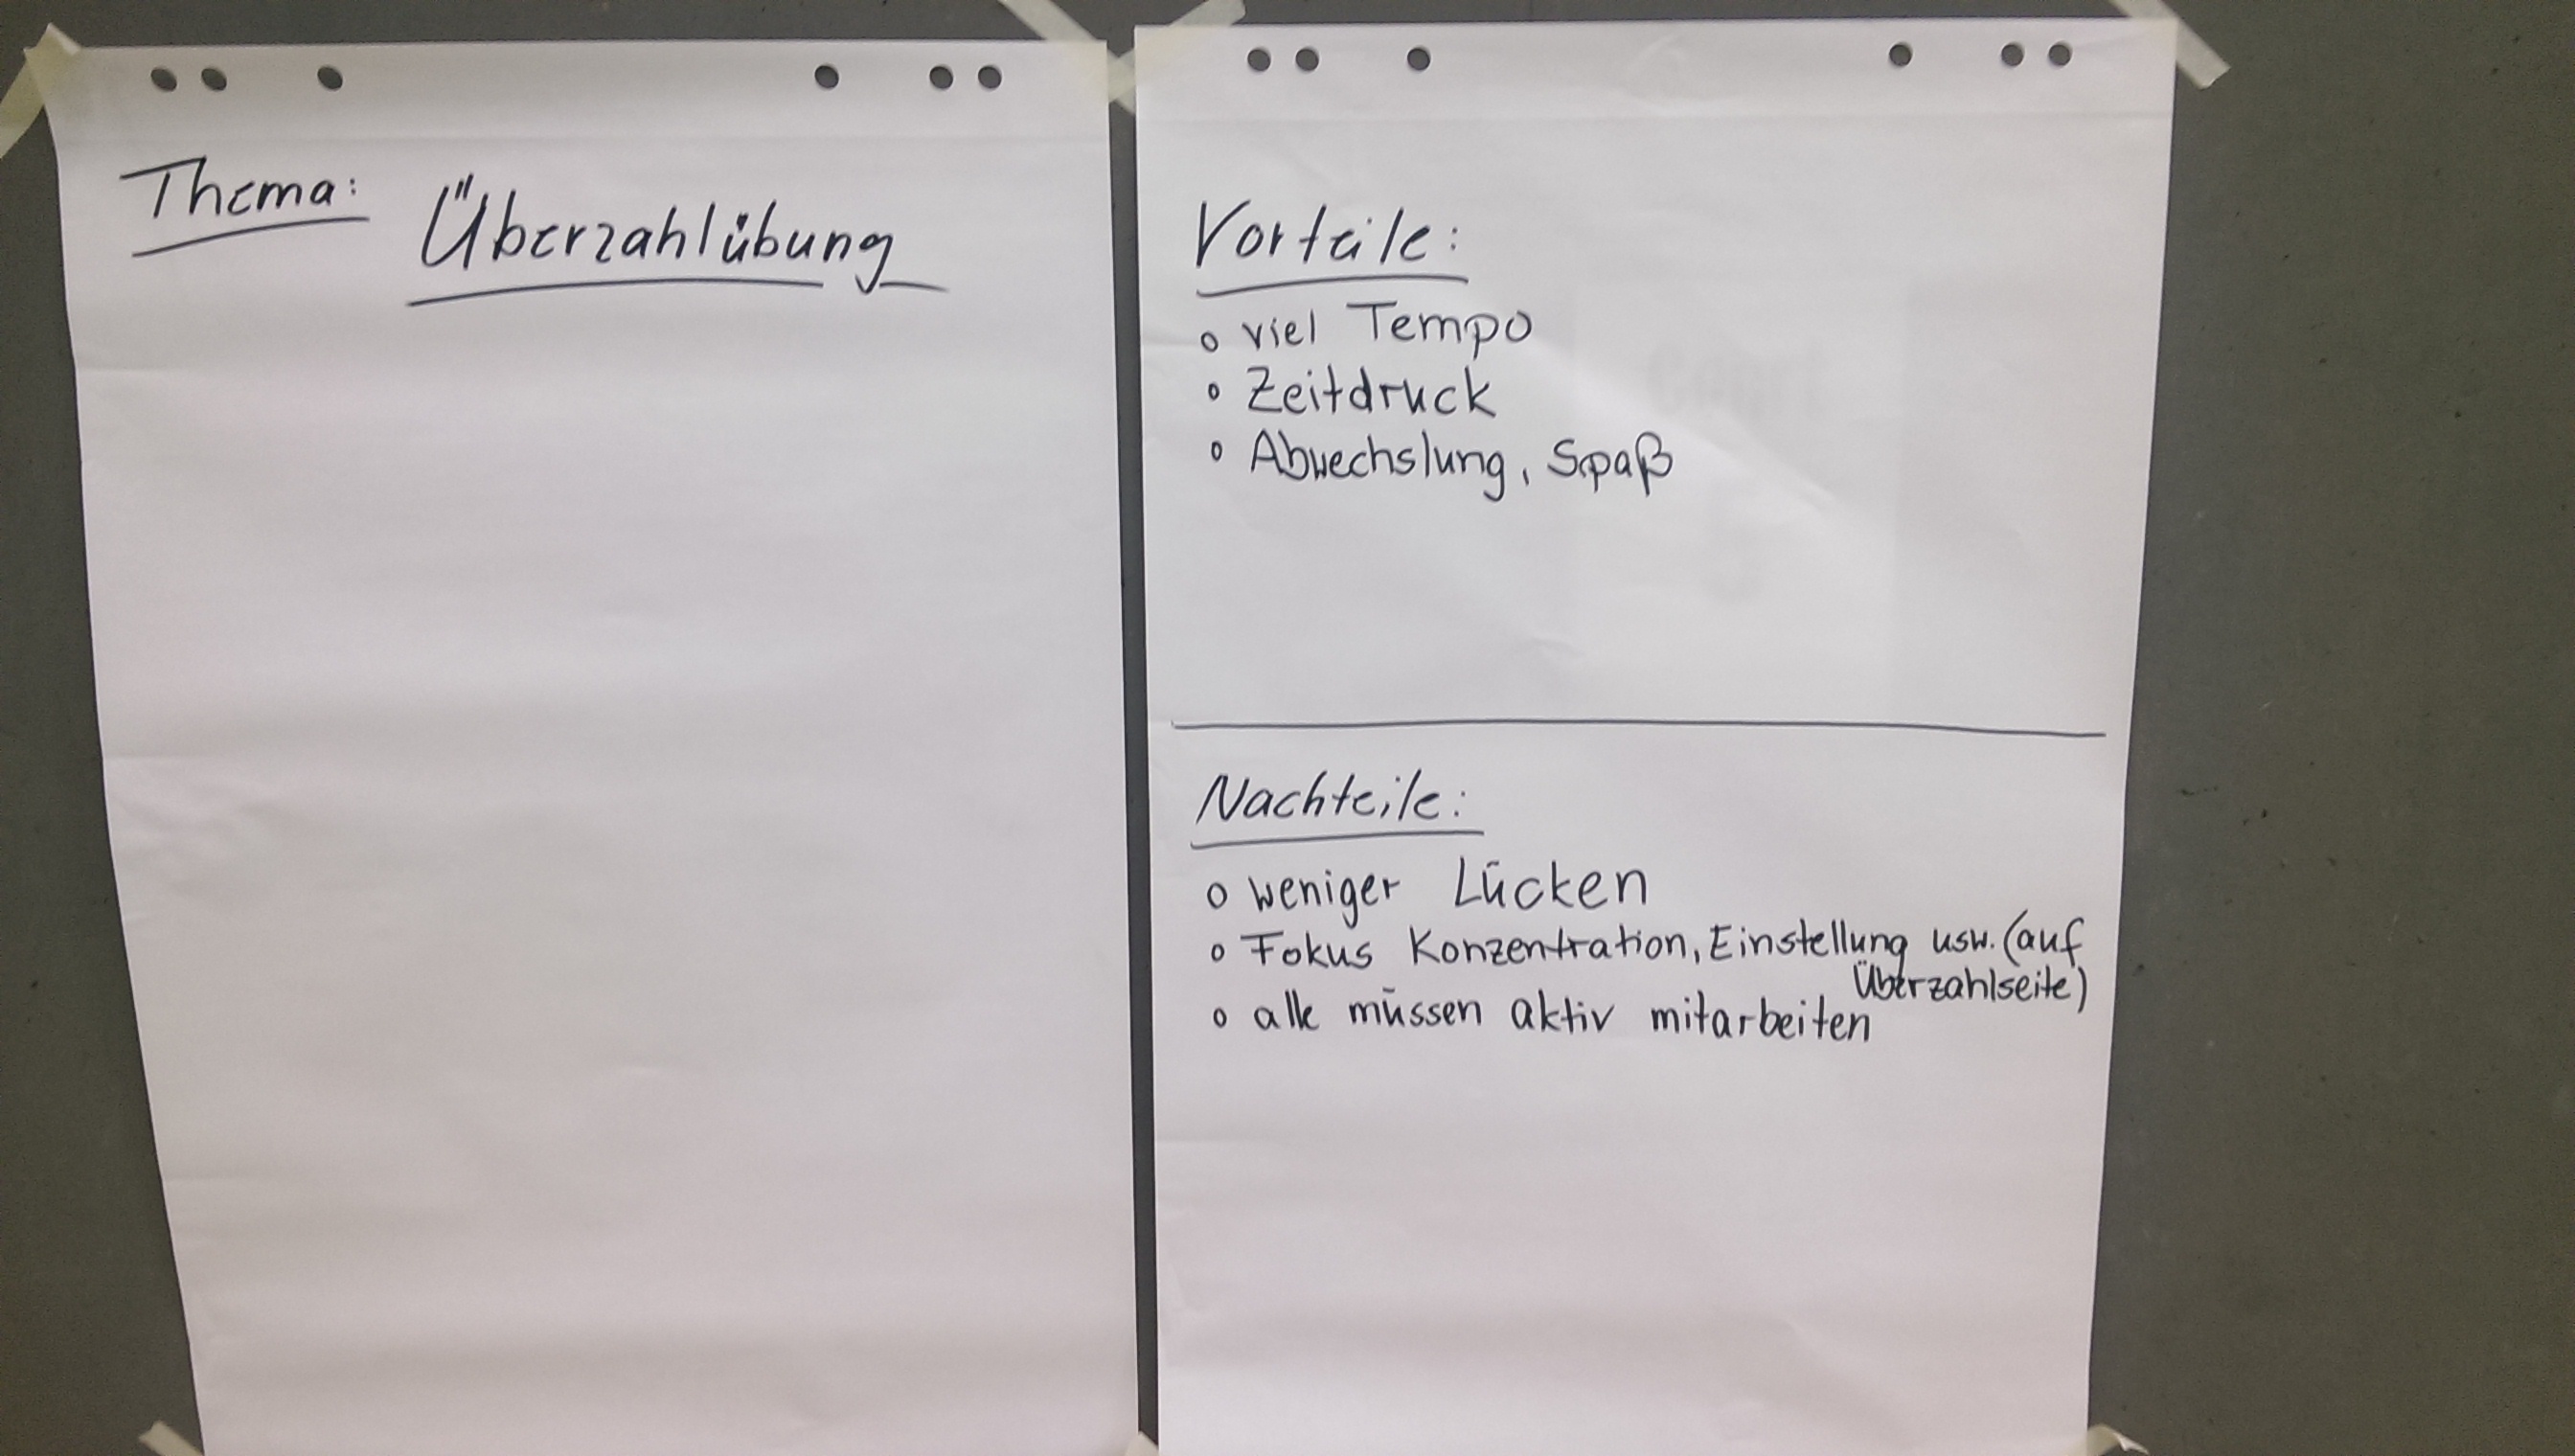 Thema:
Überzahlübung
Vorteile:
o viel Tempo
o Zeitdruck
o Abwechslung, Spaß
Nachteile:
o weniger Lücken
o Fokus Konzentration, Einstellung usw. (auf
Überzahlseite)
o alle müssen aktiv mitarbeiten